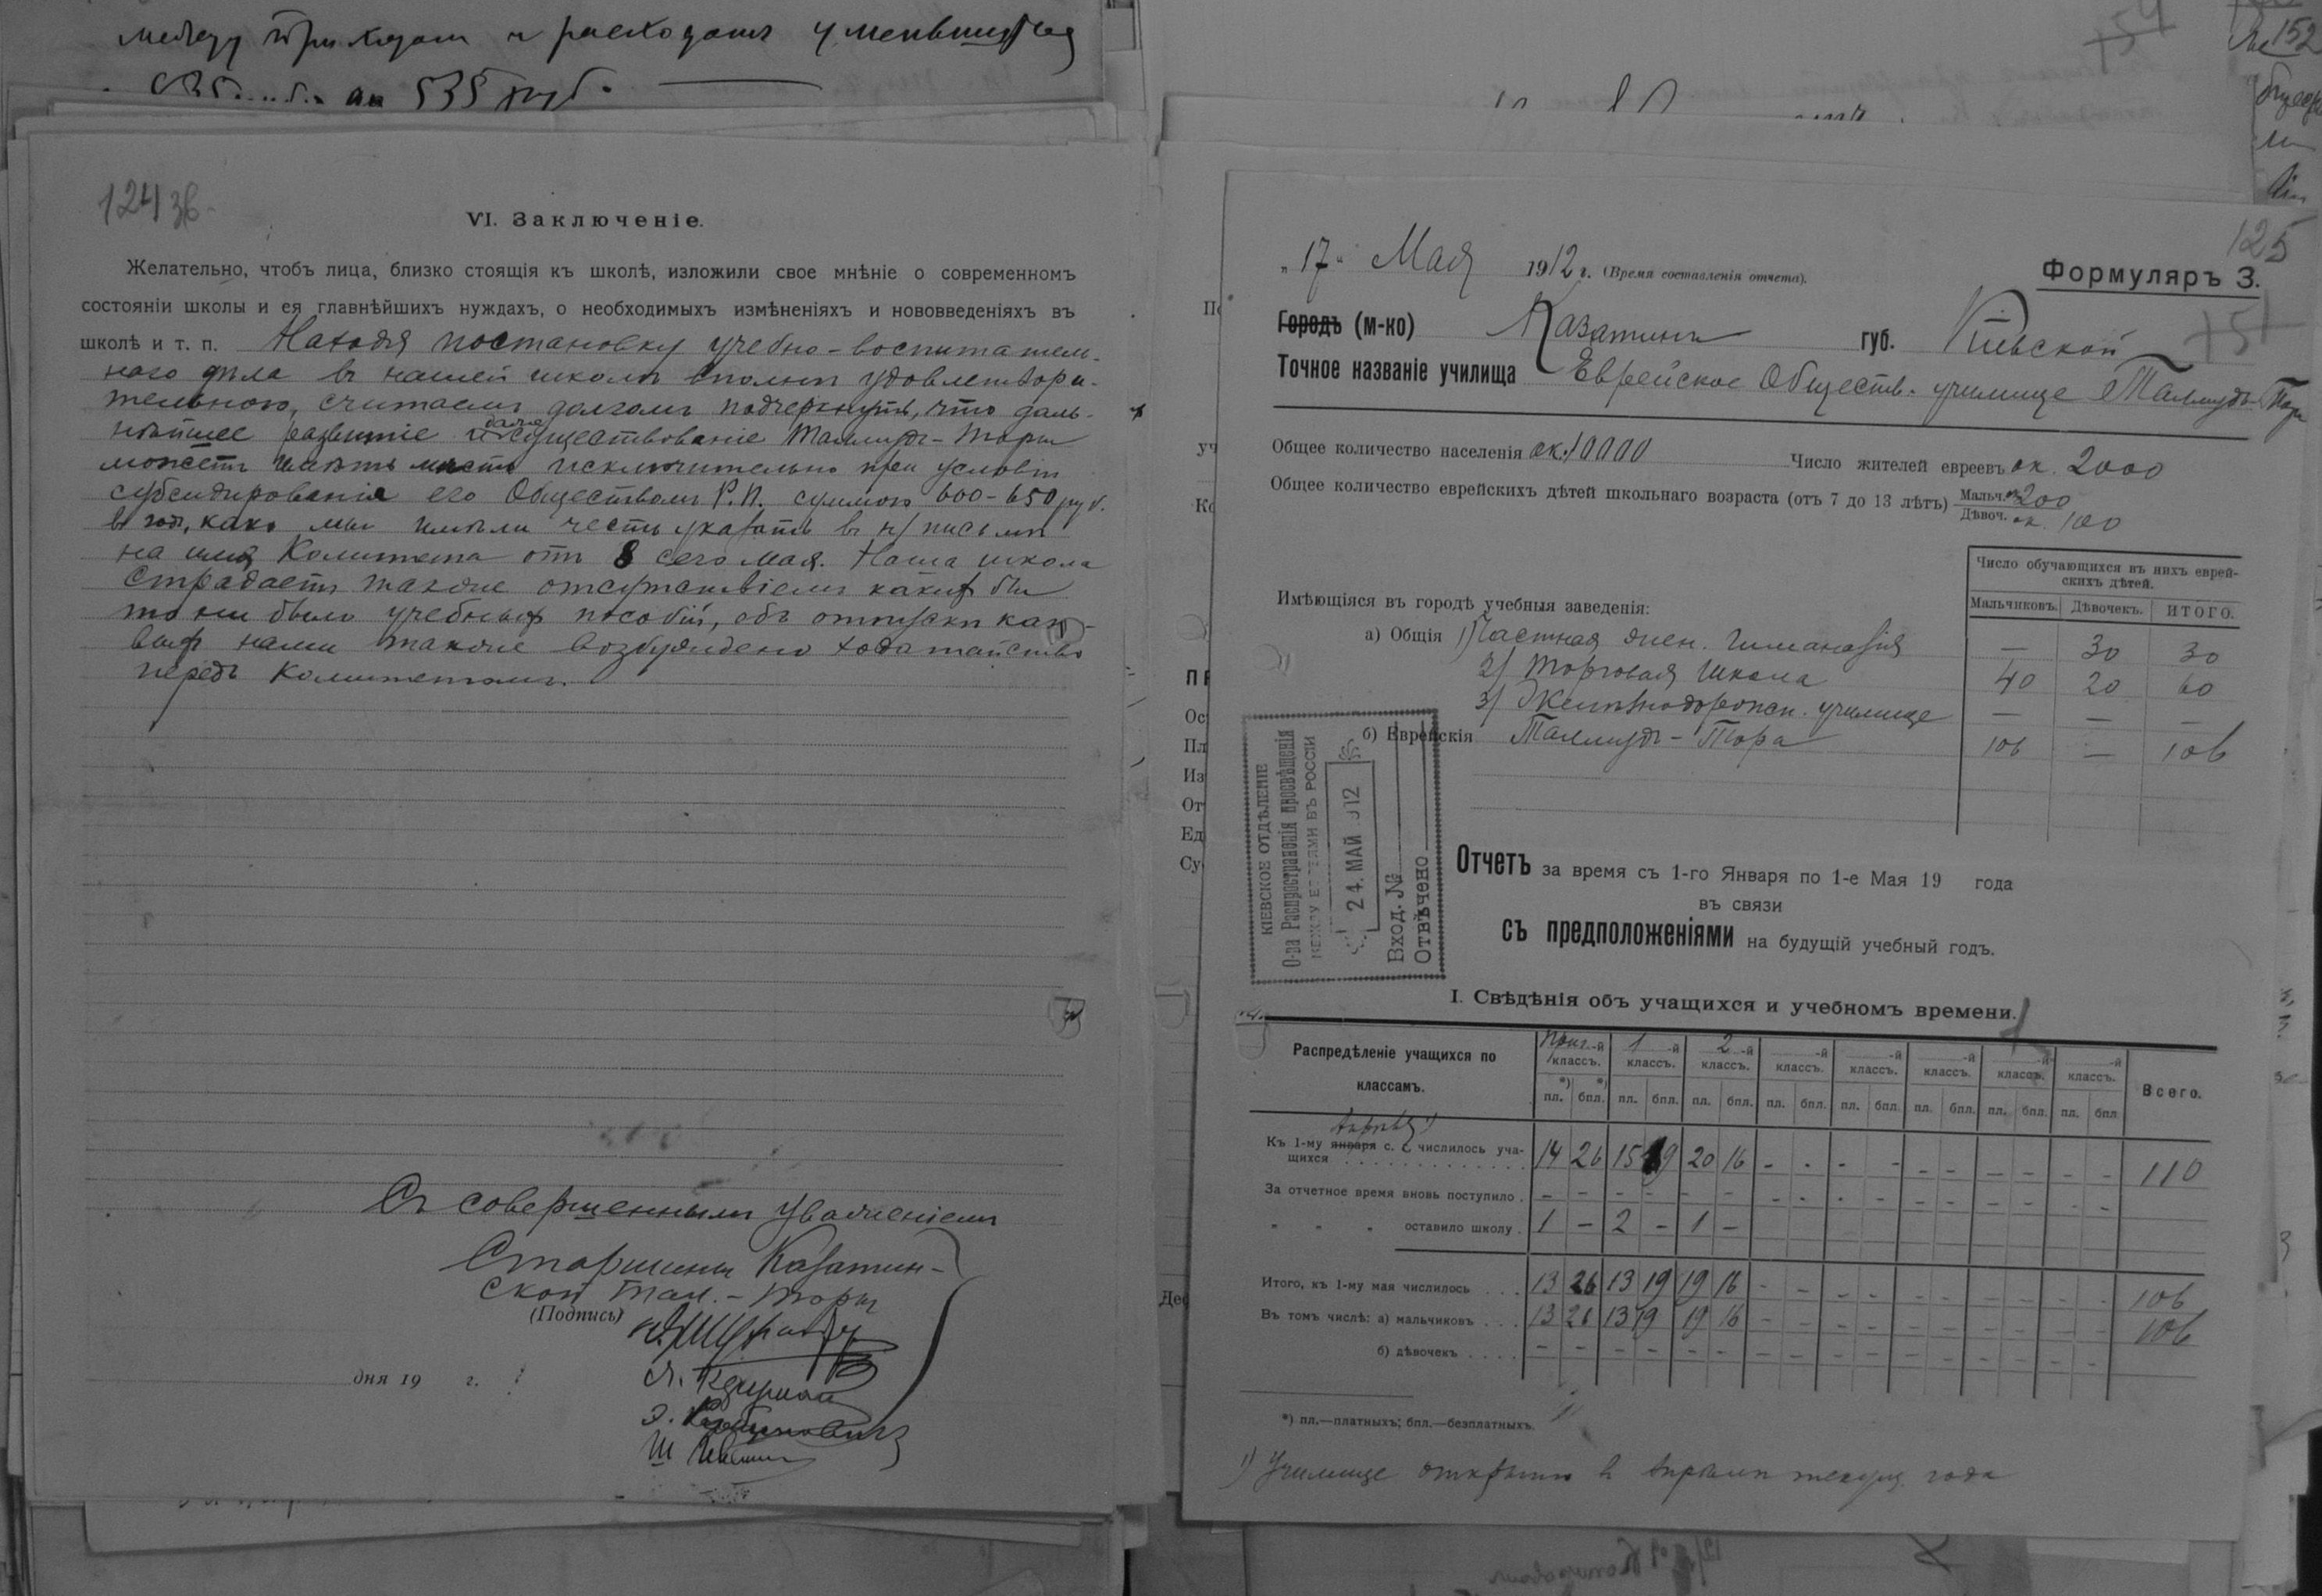 между приходом и расходом уменьшится
на 535 руб.
124 зв.
VI. Заключеніе.
Желательно, чтобъ лица, близко стоящія къ школѣ, изложили свое мнѣніе о современномъ
состояніи школы и ея главнѣйшихъ нуждахъ, о необходимыхъ измѣненіяхъ и нововведеніяхъ въ
школѣ и т. п. Находя постановку учебно-воспитатель-
наго дѣла въ нашей школѣ вполнѣ удовлетвори-
тельною, считаемъ долгомъ подчеркнуть, что даль-
нѣйшее развитіе и даже существованіе Талмудъ-Торы
можетъ имѣть мѣсто исключительно при условіи
субсидированія его Обществомъ Р. П. суммою 600-650 руб.
въ годъ, какъ мы имѣли честь указать въ н/ письмѣ
на имя Комитета отъ 8 сего мая. Наша школа
страдаетъ также отсутствіемъ какихъ бы
то ни было учебныхъ пособій, объ отпускѣ како-
выхъ нами также возбуждено ходатайство
передъ Комитетомъ.
Съ совершеннымъ уваженіемъ
Старшины Казатин-
ской Тал.-Торы
(Подпись)
дня 19 г.
125
„17" Мая 1912 г. (Время составленія отчета).
Формуляръ 3.
Городъ (м-ко) Казатинъ губ. Кіевской
151
Точное названіе училища Еврейское Обществ. училище „Талмудъ-Тора
Общее количество населенія ок. 10000 Число жителей евреевъ ок. 2000
Общее количество еврейскихъ дѣтей школьнаго возраста (отъ 7 до 13 лѣтъ) Мальч. ок. 200
Дѣвоч. ок. 100
Число обучающихся въ нихъ еврей-
скихъ дѣтей.
Имѣющіяся въ городѣ учебныя заведенія:
Мальчиковъ. Дѣвочекъ. ИТОГО.
а) Общія 1) Частная жен. гимназія — 30 30
2) Торговая школа 40 20 60
3) Желѣзнодорожн. училище — — —
б) Еврейскія Талмудъ-Тора 106 — 106
КІЕВСКОЕ ОТДѢЛЕНІЕ
О-ва Распространенія просвѣщенія
МЕЖДУ ЕВРЕЯМИ ВЪ РОССІИ
24. МАЙ 912
Вход. №
Отвѣчено
Отчетъ за время съ 1-го Января по 1-е Мая 19 года
въ связи
съ предположеніями на будущій учебный годъ.
I. Свѣдѣнія объ учащихся и учебномъ времени.
Распредѣленіе учащихся по
классамъ.
Приг.-й классъ. 1-й классъ. 2-й классъ. -й классъ. -й классъ. -й классъ. -й классъ. -й классъ. Всего.
*) *)
пл. бпл. пл. бпл. пл. бпл. пл. бпл. пл. бпл. пл. бпл. пл. бпл. пл. бпл.
апрѣля 1)
Къ 1-му января с. г. числилось уча-
щихся 14 26 15 19 20 16 - - - - - - - - - - 110
За отчетное время вновь поступило - - - - - - - - - - - - - - - -
„ „ „ оставило школу 1 - 2 - 1 -
Итого, къ 1-му мая числилось 13 26 13 19 19 16 - - - - - - - - - - 106
Въ томъ числѣ: а) мальчиковъ 13 26 13 19 19 16 - - - - - - - - - - 106
б) дѣвочекъ - - - - - - - - - - - - - - - -
*) пл.—платныхъ; бпл.—безплатныхъ.
1) Училище открыто въ апрѣлѣ текущ. года